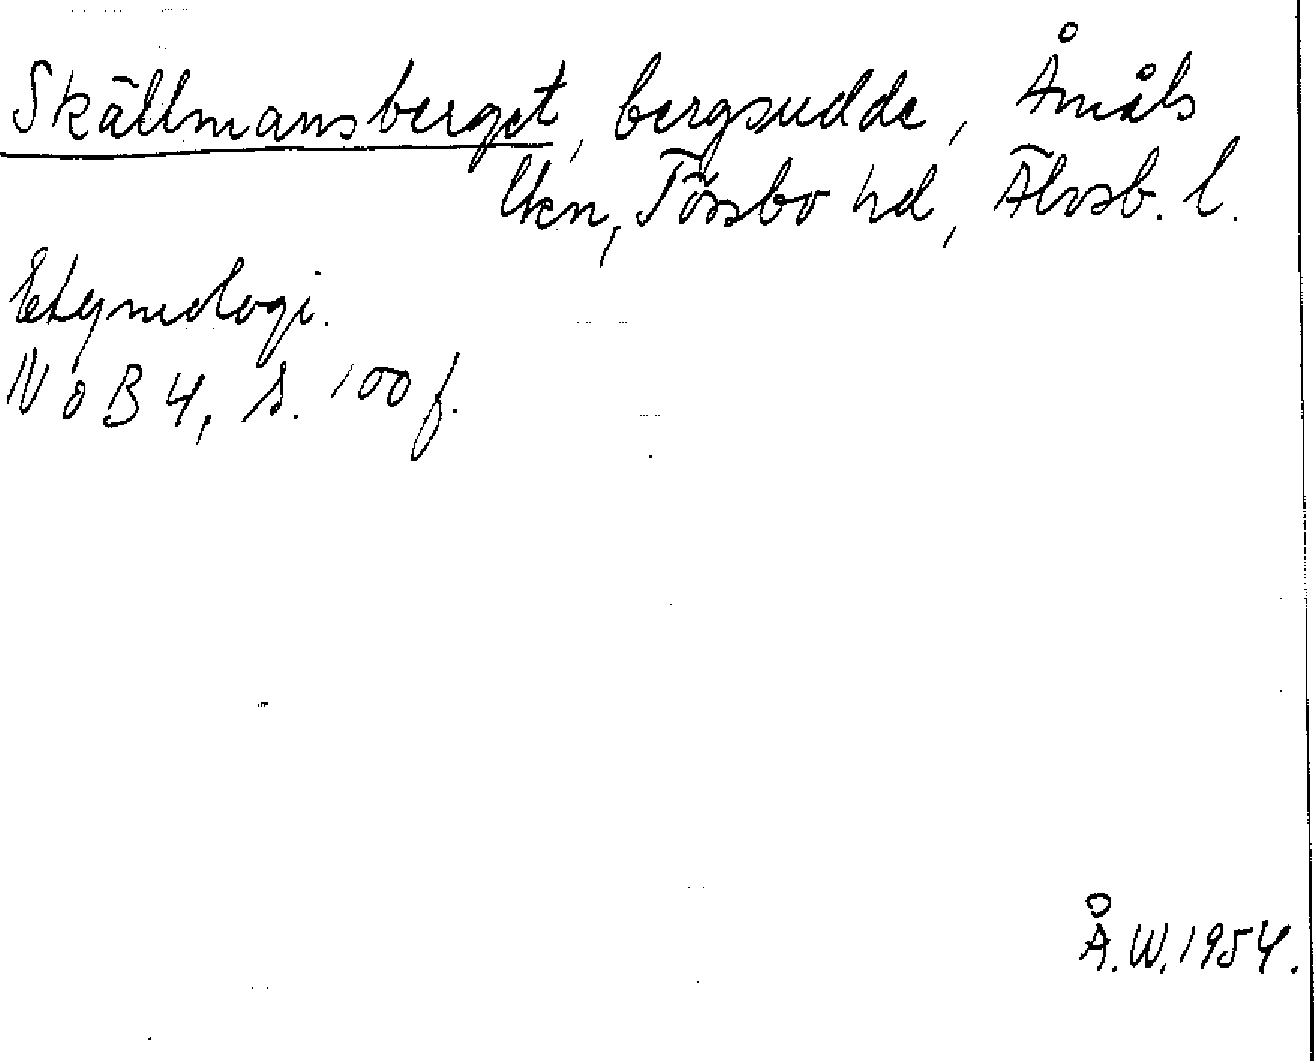 Skällmansberget, bergsudde, Åmåls
lkn, Tössbo hd, Älvsb. l.
Etymologi.
NoB 4, s. 100 f.
Å.W. 1954.